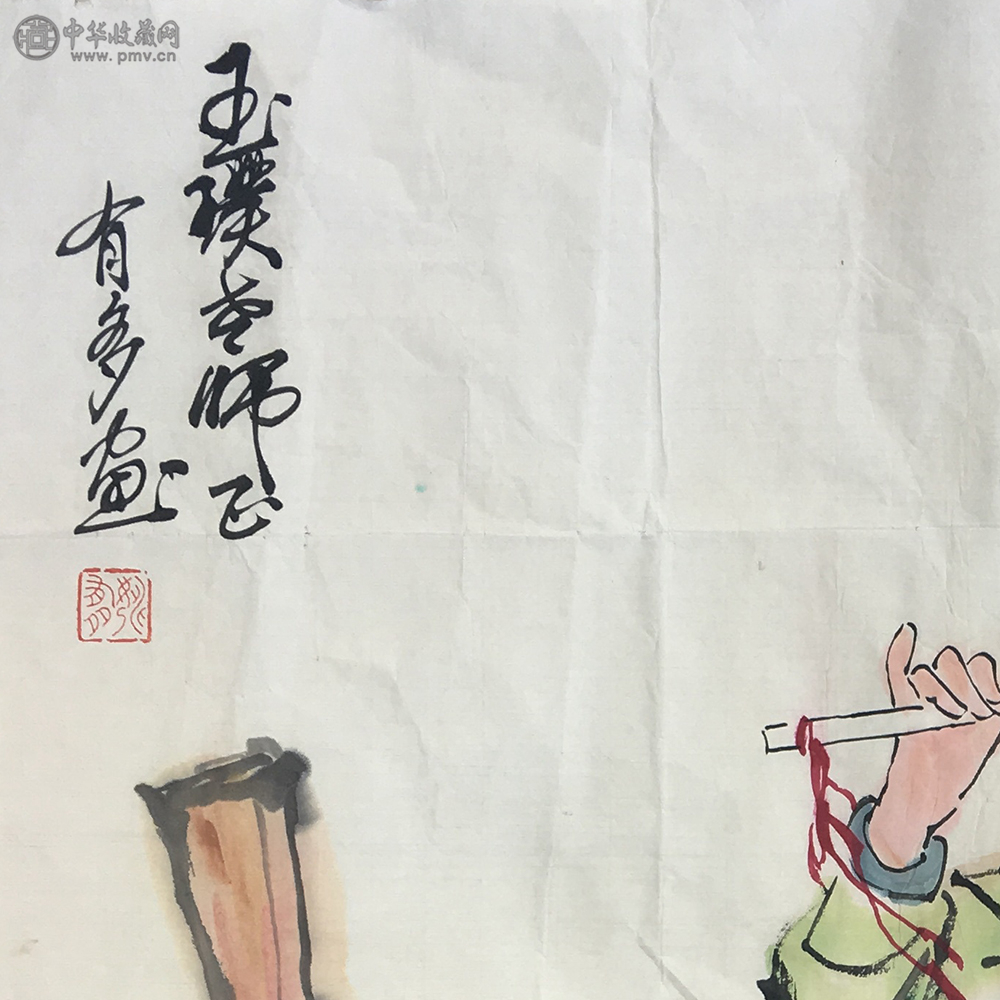 中华收藏网
www.pmv.cn
玉璞老师正
有多画
姚有多